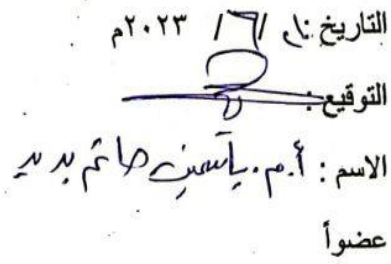 التاريخ: ١٠ /٦ / ٢٠٢٣م
التوقيع:
الاسم : أ.م. ياسمين حاتم بدير
عضواً